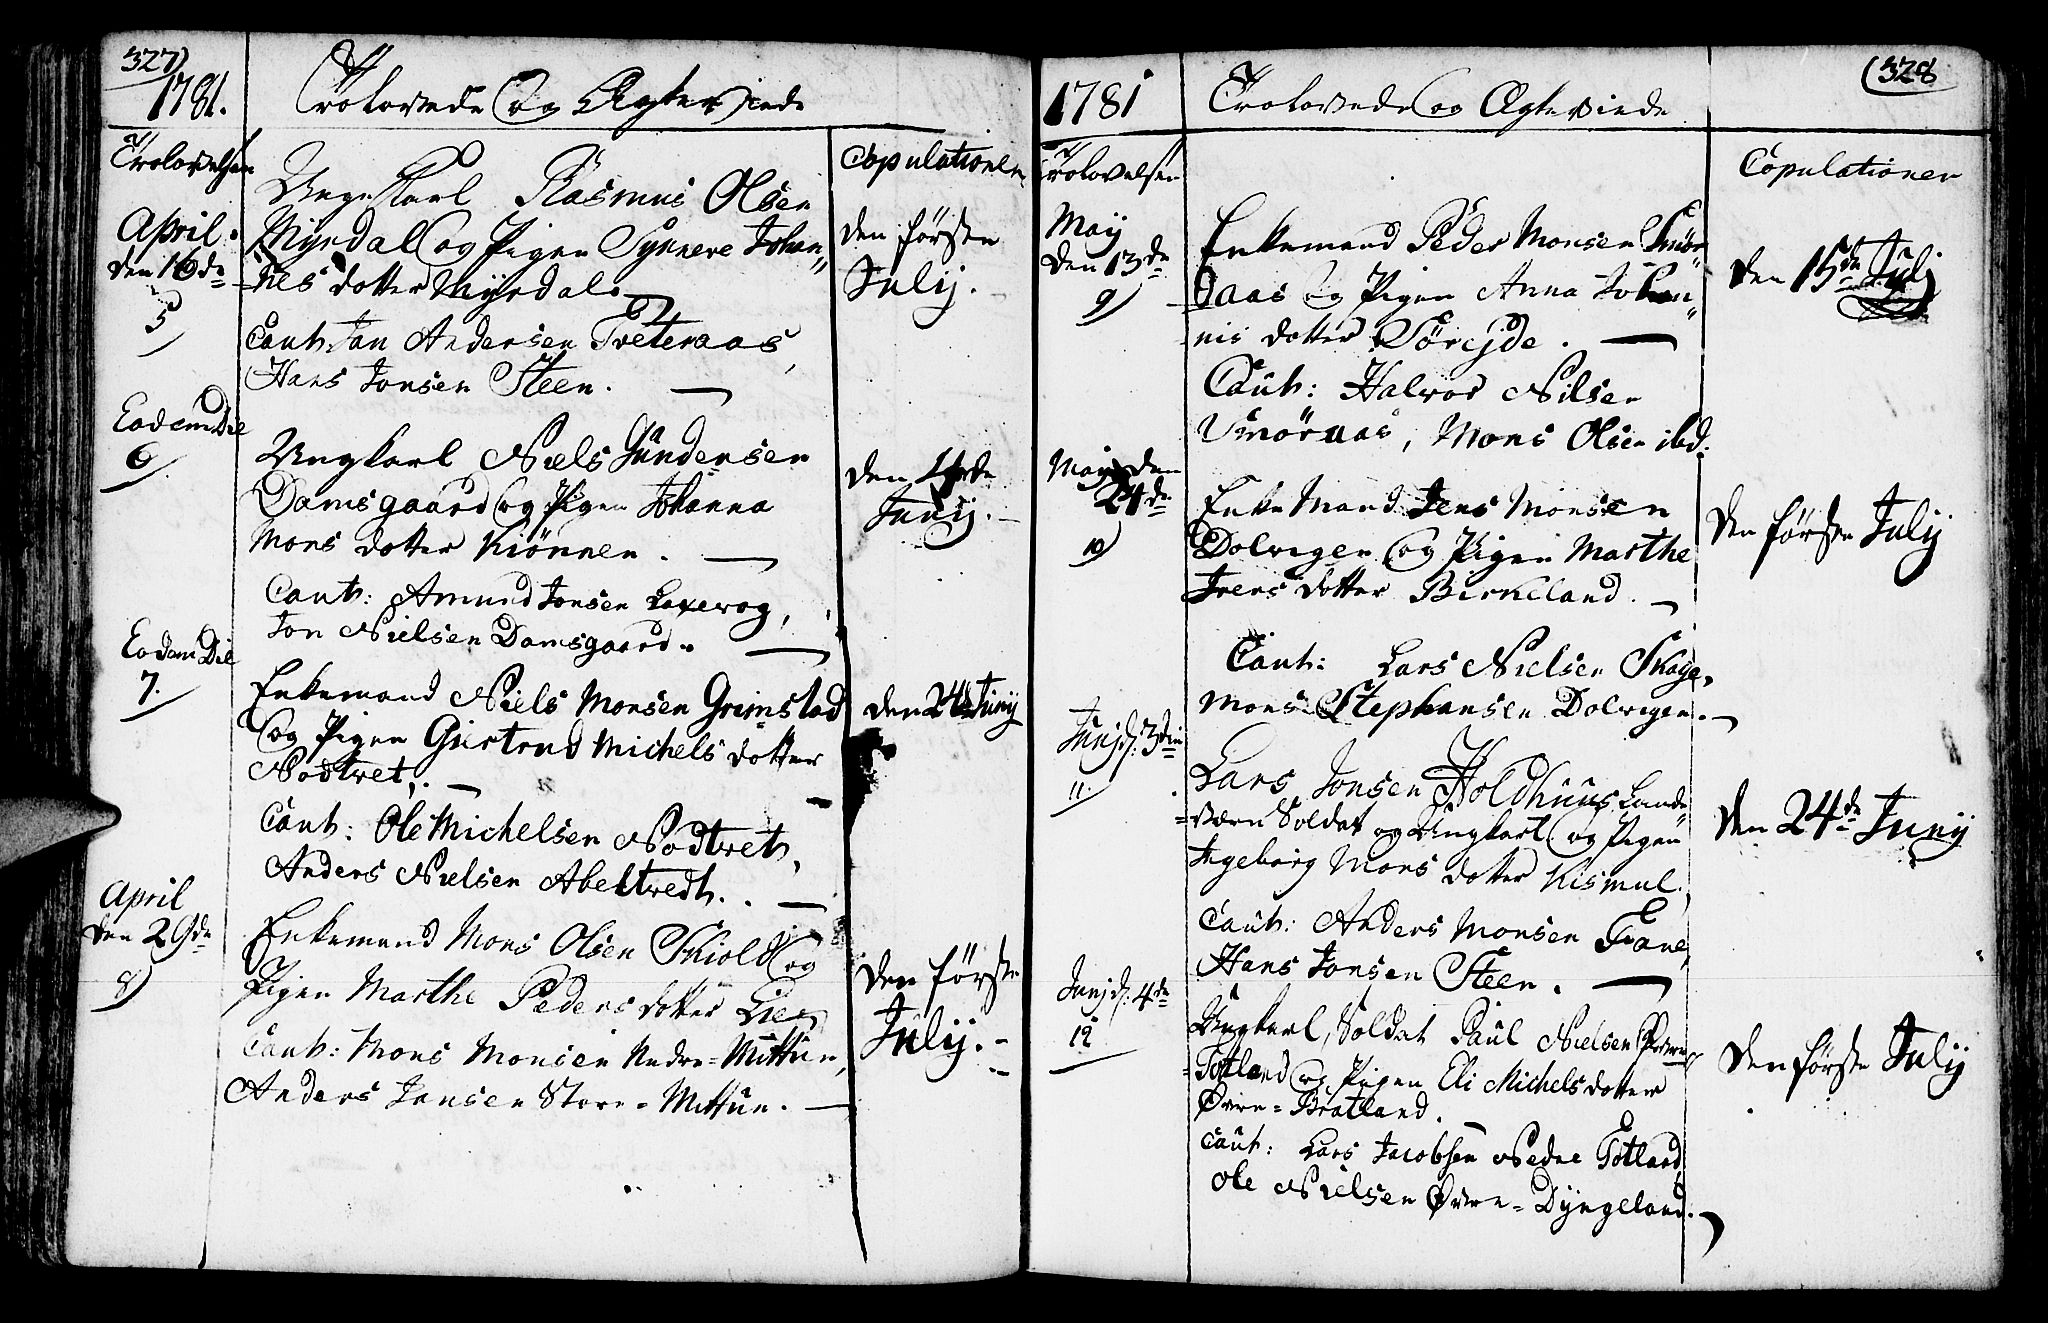 327)
1781.
Trolovede og Ægteviede
Trolovelsen
Copulationer
April.
den 16de
5
Ungekarl Rasmus Olsen
Myrdal og Pigen Synneve Johan„
„nes dotter Myrdal.
Caut: Jan Andersen Tveteraas,
Hans Jonsen Steen.
den første
Julij.
Eodem Die
6
Ungkarl Niels Gundersen
Damsgaard og Pigen Johanna
Mons dotter Kiönnen.
Caut: Amund Jonsen Laxevog,
Jon Nielsen Damsgaard.
den
Junij.
Eodem Die
7.
Enkemand Niels Monsen Grimstad
og Pigen Giertrud Michels dotter
Nodtvet,.
Caut: Ole Michelsen Nodtvet,
Anders Nielsen Abeltvedt.
den 24de Junij
April
den 29de
8)
Enkemand Mons Olsen Skiold og
Pigen Marthe Peders dotter Lie
Caut: Mons Monsen Nedre=Mittun,
Anders Jansen Store=Mittun.
den første
Julij.
(328
1781
Trolovede og Ægteviede
Trolovelsen
Copulationer
May
den 13de
9)
Enkemand Peder Monsen Smör„
aas og Pigen Anna Johan„
nis dotter Sörejde.
Caut: Halvor Nilsen
Smöraas, Mons Olsen ibd.
den 15de Julj
May den
24de
10)
Enke Mand Jens Monsen
Dolvigen og Pigen Marthe
Ivers dotter Birkeland.
Caut: Lars Nielsen Skage,
Mons Stephansen Dolvigen.
den første Julij
Junj d: 3die
11.
Lars Jonsen Holdhuus Lande„
=værn Soldat og Ungkarl og Pigen
Ingeborg Mons dotter Kismul.
Caut: Anders Monsen Fane,
Hans Jonsen Steen.
den 24de Junij
Junj d: 4de
12
Ungkarl, Soldat Paul Nielsen Øvre
=Totland og Pigen Eli Michels dotter
Øvre=Bratland.
Caut: Lars Jacobsen Nedre Totland,
Ole Nielsen Øvre=Dyngeland.
den første Julij